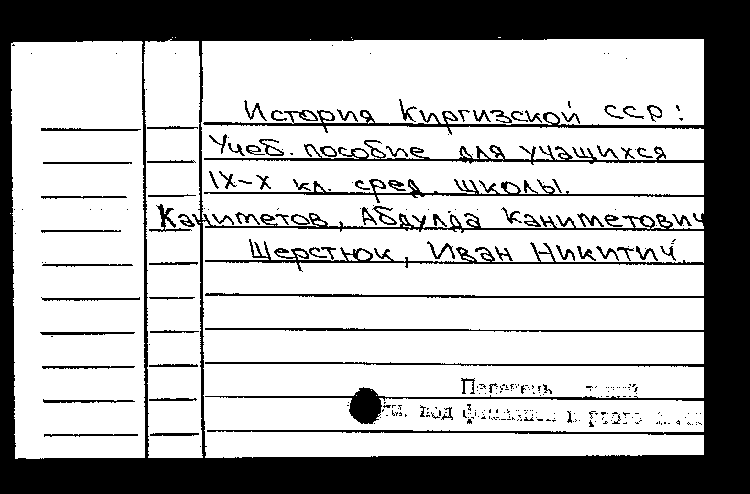 История Киргизской ССР:
Учеб. пособие для учащихся
IX-X кл. сред. школы.
Каниметов, Абдулда Каниметович
Шерстюк, Иван Никитич
Перечень
под